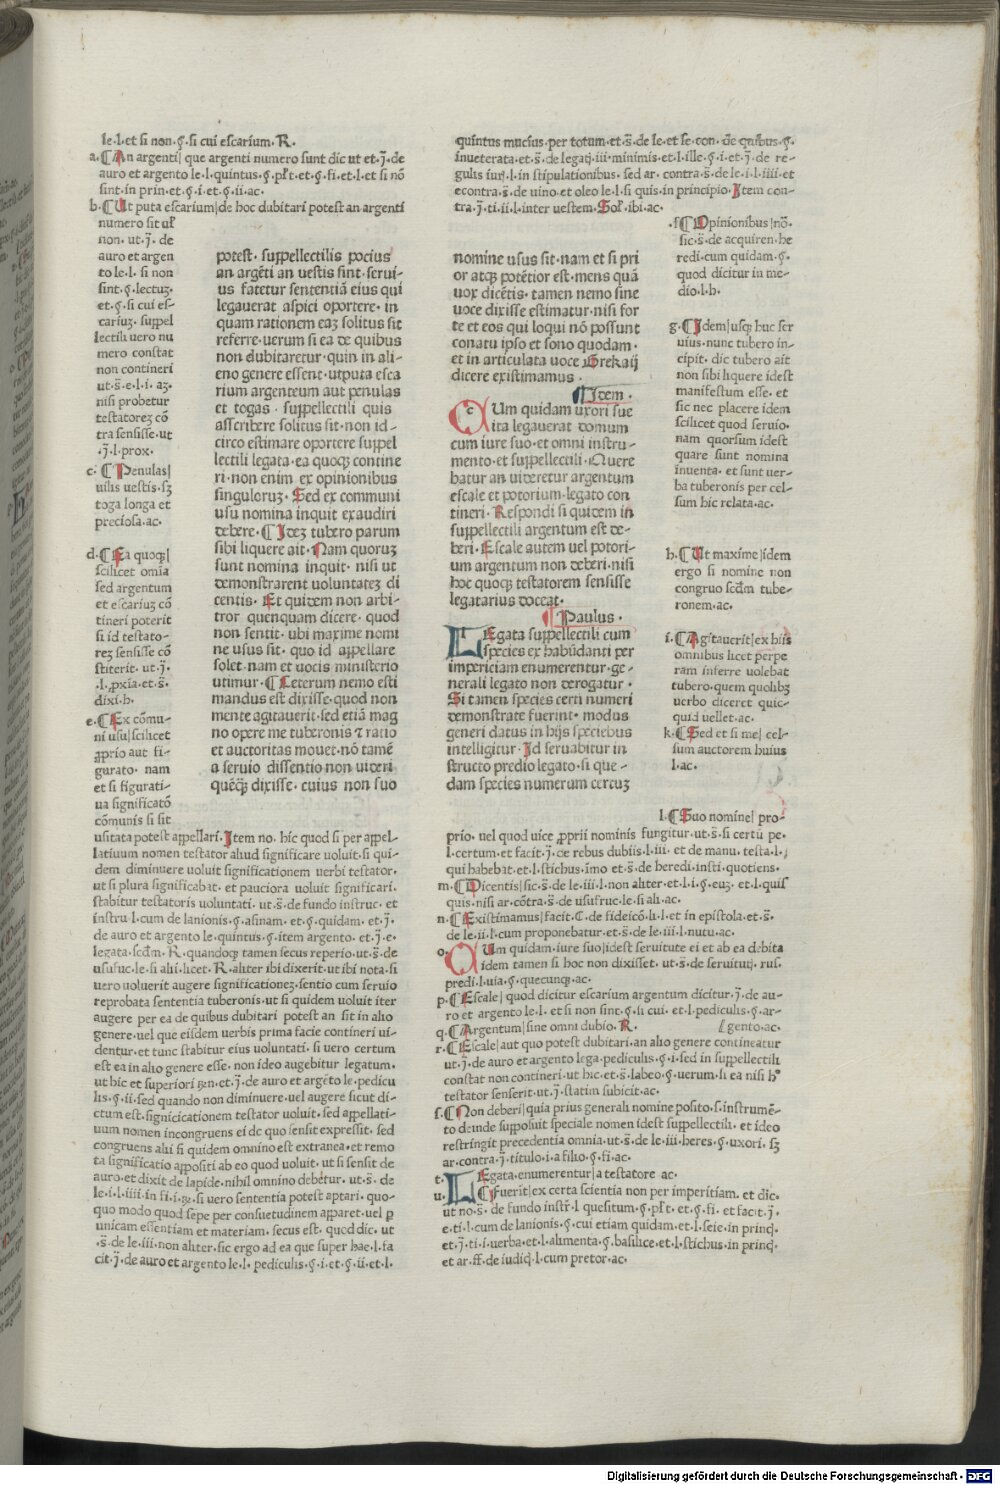 le.l.et si non.§.si cui escarium.R.
a.¶An argenti|que argenti numero sunt dic ut et.j̄.de
auro et argento le.l.quintus.§.pl't.et.§.fi.et.l.et si nō
sint.in prin.et.§.i.et.§.ii.ac.
b.¶Ut puta escarium|de hoc dubitari potest an argenti
numero sit ul'
non.ut.j̄.de
auro et argen
to le.l. si non
sint.§.lectuʒ.
et.§.si cui es-
cariuʒ. suppel
lectili uero nu
mero constat
non contineri
ut.s̄.e.l.i. aʒ.
nisi probetur
testatoreʒ cō
tra sensisse.ut
.j̄.l.prox.
c.¶Penulas|
uilis uestis.sʒ
toga longa et
preciosa.ac.
d.¶Ea quoqʒ|
scilicet omīa
sed argentum
et escariuʒ cō
tineri poterit
si id testato-
reʒ sensisse cō
stiterit.ut.j̄.
.l.ꝓxīa.et.s̄.
dixi.h.
e.¶Ex cōmu-
ni usu|scilicet
ꝓprio aut fi-
gurato. nam
et si figurati-
ua significatō
cōmunis si sit
potest. suppellectilis pocius
an argēti an uestis sint.serui-
us fatetur sententiā eius qui
legauerat aspici oportere. in
quam rationem eaʒ solitus sit
referre.uerum si ea de quibus
non dubitaretur.quin in ali-
eno genere essent.utputa esca
rium argenteum aut penulas
et togas. suppellectili quis
asscribere solitus sit.non id-
circo estimare oportere suppel
lectili legata.ea quoqʒ contine
ri.non enim ex opinionibus
singuloruʒ. Sed ex communi
usu nomina inquit exaudiri
debere.¶Ideʒ tubero parum
sibi liquere ait.Nam quoruʒ
sunt nomina inquit. nisi ut
demonstrarent uoluntateʒ di
centis. Et quidem non arbi-
tror quenquam dicere. quod
non sentit.ubi maxime nomi
ne usus sit. quo id appellare
solet.nam et uocis ministerio
utimur.¶Ceterum nemo esti
mandus est dixisse.quod non
mente agitauerit.sed etiā mag
no opere me tuberonis ⁊ ratio
et auctoritas mouet.nō tamē
a seruio dissentio non uideri
quēqʒ dixisse. cuius non suo
usitata potest appellari.Item no. hic quod si per appel-
latiuum nomen testator aliud significare uoluit.si qui-
dem diminuere uoluit significationem uerbi testator.
ut si plura significabat. et pauciora uoluit significari.
stabitur testatoris uoluntati. ut.s̄.de fundo instruc. et
instru.l.cum de lanionis.§.asinam. et.§.quidam. et.j̄.
de auro et argento le.quintus.§.item argento. et.j̄.e.
legata.scdm̄. R.quandoqʒ tamen secus reperio.ut.s̄.de
usufuc.le.si alii.licet.R.aliter ibi dixerit.ut ibi nota.si
uero uoluerit augere significationeʒ.sentio cum seruio
reprobata sententia tuberonis.ut si quidem uoluit iter
augere per ea de quibus dubitari potest an sit in alio
genere.uel que eisdem uerbis prima facie contineri ui-
dentur.et tunc stabitur eius uoluntati.si uero certum
est ea in alio genere esse. non ideo augebitur legatum.
ut hic et superiori ꝶn.et.j̄.de auro et argēto le.pedicu
lis.§.ii.sed quando non diminuere.uel augere sicut di-
ctum est.signicicationem testator uoluit.sed appellati-
uum nomen incongruens ei de quo sensit expressit. sed
congruens alii si quidem omnino est extranea.et remo
ta significatio appositi ab eo quod uoluit.ut si sensit de
auro.et dixit de lapide.nihil omnino debētur. ut.s̄. de
le.i.l.iiii.in fi.i.ꝶ.si uero sententia potest aptari. quo-
quo modo quod sepe per consuetudinem apparet.uel ꝑ
unicam essentiam et materiam.secus est. quod dic. ut
.s̄.de le.iii.non aliter.sic ergo ad ea que super hac.l.fa
cit.j̄.de auro et argento le.l. pediculis.§.i.et.§.ii.et.l.
quīntus mucius.per totum.et.s̄.de le.et fe.con.de quibus.§.
inueterata.et.s̄.de legatj.iii.minimis.et.l.ille.§.i.et.j̄.de re-
gulis iurj.l.in stipulationibus. sed ar. contra.s̄.de le.i.l.iiii.et
econtra.s̄.de uino.et oleo le.l.si quis.in principio.Item con-
tra.j̄.ti.ii.l.inter uestem.Sol'.ibi.ac.
.f.¶Opinionibus|nō.
sic.s̄.de acquiren.he
redi.cum quidam.§.
quod dicitur in me-
dio.l.h.
g.¶Idem|usqʒ huc ser
uius.nunc tubero in-
cipit. dic tubero ait
non sibi liquere idest
manifestum esse. et
sic nec placere idem
scilicet quod seruio.
nam quorsum idest
quare sunt nomina
inuenta. et sunt uer-
ba tuberonis per cel-
sum hic relata.ac.
h.¶Ut maxime|idem
ergo si nomine non
congruo scdm̄ tube-
ronem.ac.
i.¶Agitauerit|ex hiis
omnibus licet perpe
ram inferre uolebat
tubero.quem quolibʒ
uerbo diceret quic-
quid uellet.ac.
k.¶Sed et si me| cel-
sum auctorem huius
l.ac.
l.¶Suo nomine| pro-
nomine usus sit.nam et si pri
or atqʒ potētior est.mens quā
uox dicētis. tamen nemo sine
uoce dixisse estimatur.nisi for
te et eos qui loqui nō possunt
conatu ipso et sono quodam.
et in articulata uoce Grekaij
dicere existimamus.
¶Idem.
CUm quidam uxori sue
ita legauerat domum
cum iure suo.et omni instru-
mento.et suppellectili.Quere
batur an uideretur argentum
escale et potorium.legato con
tineri. Respondi si quidem in
suppellectili argentum est de-
beri.Escale autem uel potori-
um argentum non deberi.nisi
hoc quoqʒ testatorem sensisse
legatarius doceat.
¶Paulus.
LEgata suppellectili cum
species ex habūdanti per
impericiam enumerentur.ge-
nerali legato non derogatur.
Si tamen species certi numeri
demonstrate fuerint. modus
generi datus in hijs speciebus
intelligitur.Id seruabitur in
structo predio legato.si que-
dam species numerum certuʒ
prio. uel quod uice ꝓprii nominis fungitur.ut.s̄.si certū pe.
l.certum.et facit.j̄.de rebus dubiis.l.iii.et de manu. testa.l.
qui habebat.et.l.stichus.imo et.s̄.de heredi.insti.quotiens.
m.¶Dicentis|sic.s̄.de le.iii.l.non aliter.et.l.i.§.euʒ. et.l.quis
quis.nisi ar.cōtra.s̄.de usufruc.le.si ali.ac.
n.¶Existimamus|facit.C.de fideicō.li.l.et in epistola.et.s̄.
de le.ii.l.cum proponebatur.et.s̄.de le.iii.l.nutu.ac.
o.CUm quidam.iure suo|idest seruitute ei et ab ea debita
idem tamen si hoc non dixisset. ut.s̄.de seruitutj. rus.
predi.l.uia.§.quecunqʒ.ac.
p.¶Escale| quod dicitur escarium argentum dicitur.j̄.de au-
ro et argento le.l. et si non sint.§.si cui. et.l.pediculis.§.ar-
q.¶Argentum|sine omni dubio.R. [gento.ac.
r.¶Escale|aut quo potest dubitari.an alio genere contineatur
ut.j̄.de auro et argento lega.pediculis.§.i.sed in suppellectili
constat non contineri.ut hic.et.s̄.labeo.§.uerum.si ea nisi hº
testator senserit.ut.j̄.statim subicit.ac.
s.¶Non deberi|quia prius generali nomine posito.s.instrumē-
to deinde supposuit speciale nomen idest suppellectili. et ideo
restringit precedentia omnia.ut.s̄.de le.iii.heres.§.uxori. sʒ
ar.contra.j̄.titulo.i.a filio.§.fi.ac.
t.LEgata.enumerentur|a testatore ac.
u.¶Fuerit|ex certa scientia non per imperitiam.et dic.
ut no.s̄. de fundo instr.l quesitum.§.pl't.et.§.fi. et facit.j̄.
e.ti.l.cum de lanionis.§.cui etiam quidam.et.l.seie.in princj.
et.j̄.ti.i.uerba.et.l.alimenta.§.basilice.et.l.stichus.in princj.
et ar.ff.de iudicj.l.cum pretor.ac.
Digitalisierung gefördert durch die Deutsche Forschungsgemeinschaft - DFG